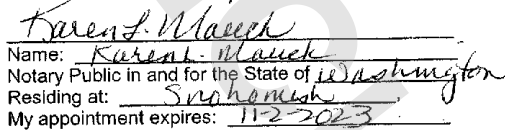 Karen L. Mauch
Name: Karen L. Mauch
Notary Public in and for the State of Washington
Residing at: Snohomish
My appointment expires: 11-2-2023